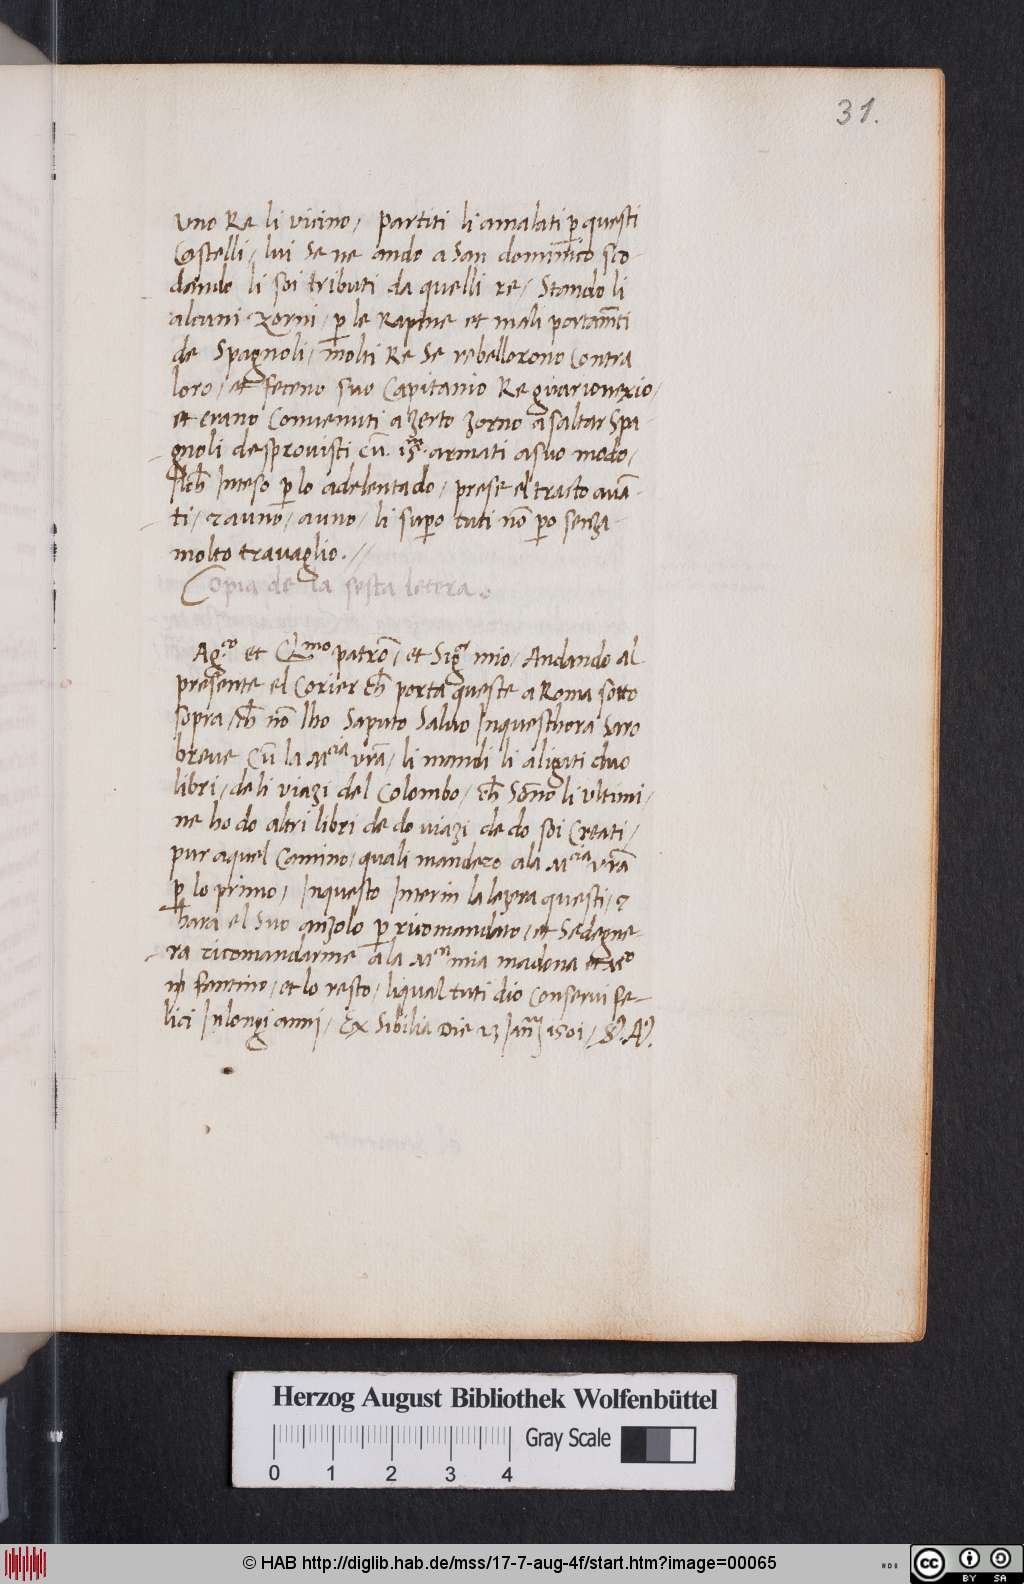 31.
uno Re li vicino / partiti li amalati p̱ questi
Castelli / lui se ne ando a San domin̄ico sco-
dando li soi tributi da quelli re / Stando li
alcuni zorni / p̱ le Rapine et mali portam̄ti
de Spagnoli / molti Re Se rebellorono Contra
loro / et feceno suo Capitanio Re guarionexio /
et erano Convenuti a zerto zorno asaltar Spa-
gnoli desprovisti cū. 15ᵐ. armati a suo modo /
Inteso p̱ lo adelentado / prese el tracto auā-
ti / auno / auno / li supo tuti nō p̱o senza
molto travaglio . //
Copia de la sesta letera .
et Cl.ᵐᵒ patrō / et Sigʳ mio / Andando al
presente el Corier ch̄ porta queste a Roma sotto
sopra / ch̄ nō lho Saputo Salvo Inquesthora Saro
breve Cū la Mᵗⁱᵃ vrā / li mandi li aligati duo
libri / de li viazi del Colombo / ch̄ Sōno li ultimi /
ne ho do altri libri de do viazi de do soi Creati /
pur a quel Camino / quali mandero ala Mᵗⁱᵃ vrā
p̱ lo primo / Inquesto Interin la lezera questi / 7
hara el Suo anzolo p̱ ricomandato / et Se degne-
ra ricomandarme ala mia madona et
fantino / et lo resto / liqual tuti dio Conservi fe-
lici In longi anni / Ex Sibilia Die 1501 /
Herzog August Bibliothek Wolfenbüttel
0 1 2 3 4 Gray Scale
© HAB http://diglib.hab.de/mss/17-7-aug-4f/start.htm?image=00065
cc BY SA